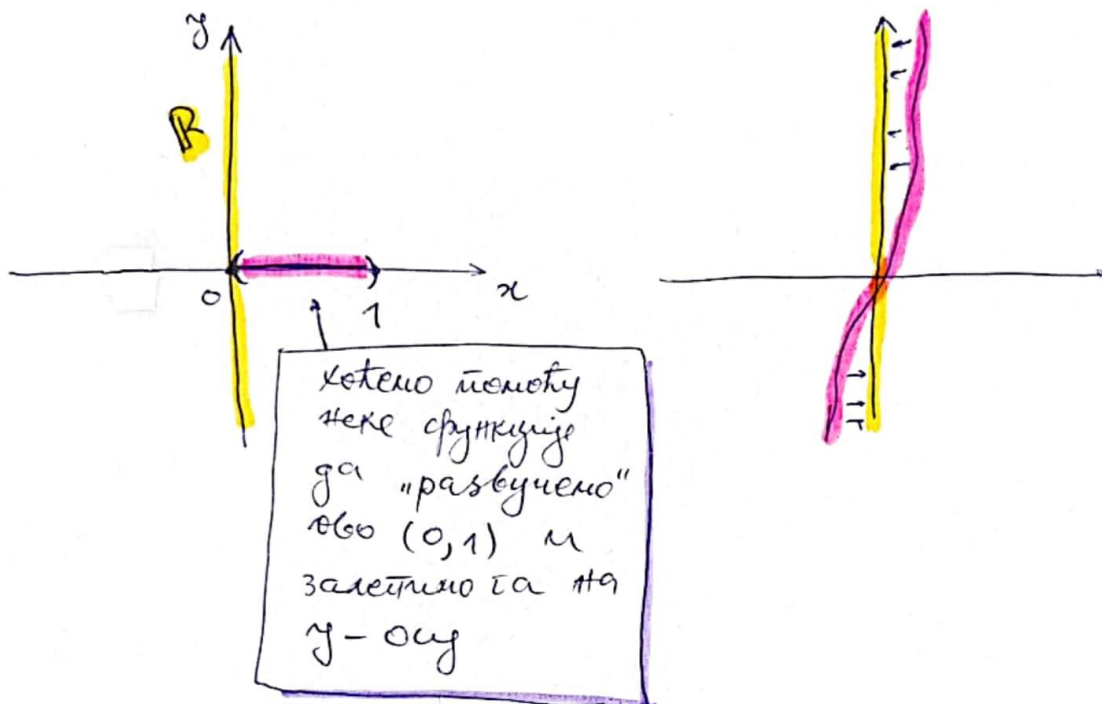 y
R
0
1
x
хоћемо помоћу
неке функције
да „развучемо“
ово (0,1) и
залепимо га на
y-осу